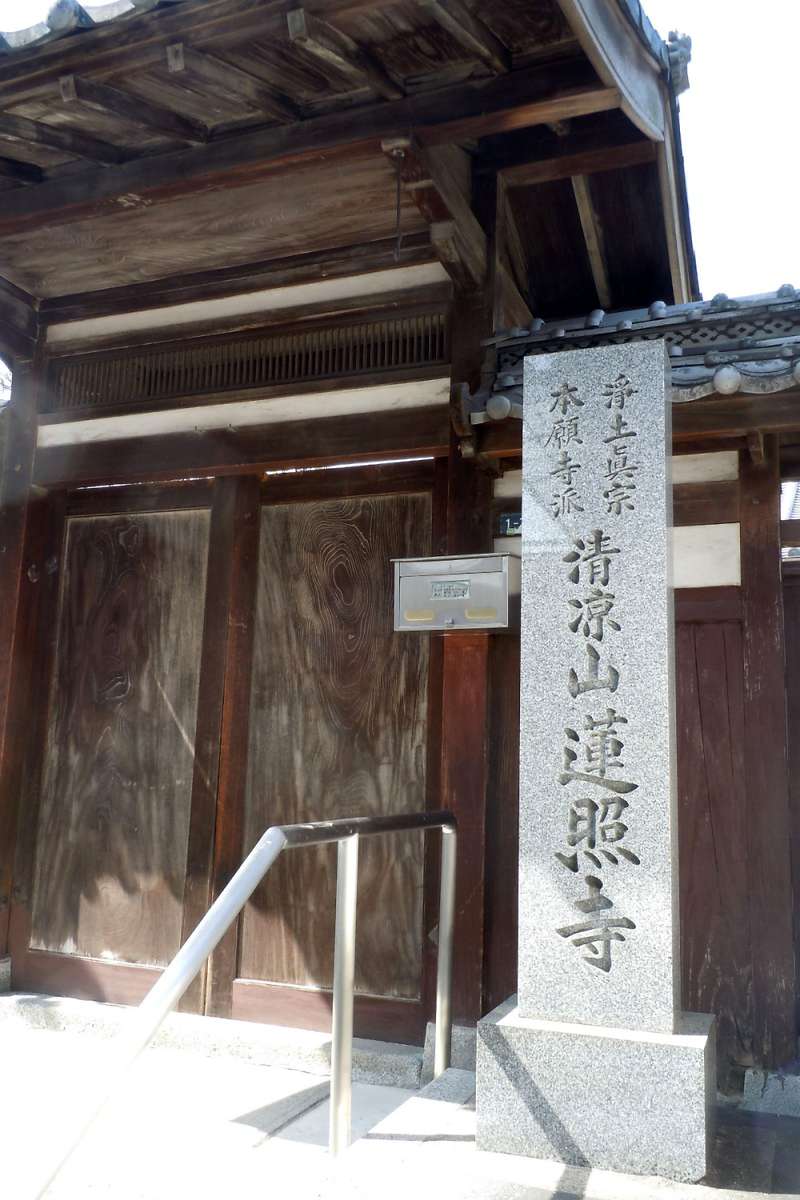 淨土眞宗
本願寺派
清凉山蓮照寺